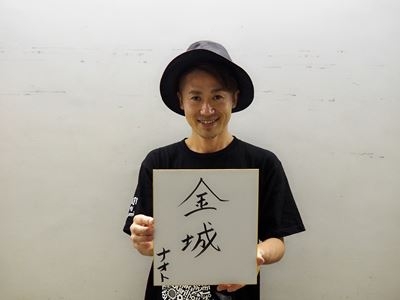 金城
ナオト